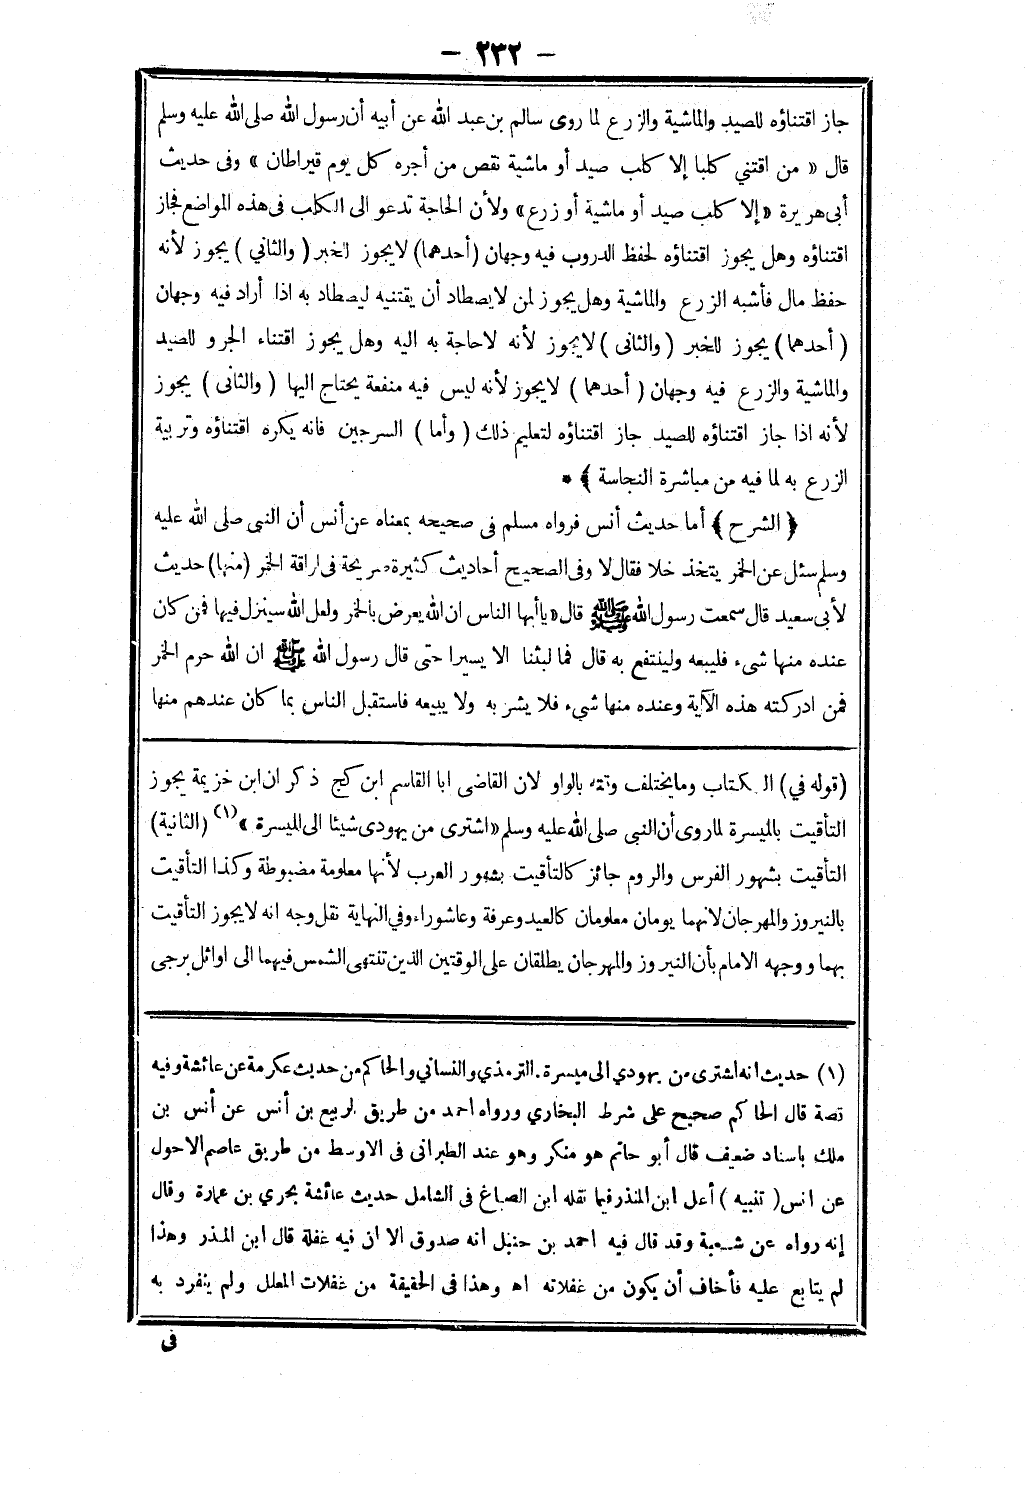 – ٢٣٢ –
جاز اقتناؤه للصيد والماشية والزرع لما روى سالم بن عبد الله عن أبيه أن رسول الله صلى الله عليه وسلم
قال « من اقتني كلبا إلا كلب صيد أو ماشية نقص من أجره كل يوم قيراطان » وفى حديث
أبى هريرة « إلا كلب صيد أو ماشية أو زرع » ولأن الحاجة تدعو الى الكلب فى هذه المواضع فجاز
اقتناؤه وهل يجوز اقتناؤه لحفظ الدروب فيه وجهان (أحدهما) لا يجوز الخبر ( والثاني ) يجوز لأنه
حفظ مال فأشبه الزرع والماشية وهل يجوز لمن لا يصطاد أن يقتنيه ليصطاد به اذا أراد فيه وجهان
( أحدهما ) يجوز للخبر ( والثانى ) لا يجوز لأنه لا حاجة به اليه وهل يجوز اقتناء الجرو للصيد
والماشية والزرع فيه وجهان ( أحدهما ) لا يجوز لأنه ليس فيه منفعة يحتاج اليها ( والثانى ) يجوز
لأنه اذا جاز اقتناؤه للصيد جاز اقتناؤه لتعليم ذلك ( وأما ) السرجين فانه يكره اقتناؤه وتربية
الزرع به لما فيه من مباشرة النجاسة ﴾ *
﴿ الشرح ﴾ أما حديث أنس فرواه مسلم فى صحيحه بمعناه عن أنس أن النبى صلى الله عليه
وسلم سئل عن الخمر يتخذ خلا فقال لا وفى الصحيح أحاديث كثيرة صريحة فى اراقة الخمر (منها) حديث
لأبى سعيد قال سمعت رسول الله ﷺ قال « ياأيها الناس ان الله يعرض بالخمر ولعل الله سينزل فيها فمن كان
عنده منها شيء فليبعه ولينتفع به قال فما لبثنا الا يسيرا حتى قال رسول الله ﷺ ان الله حرم الخمر
فمن ادركته هذه الآية وعنده منها شيء فلا يشر به ولا يبيعه فاستقبل الناس بما كان عندهم منها
(قوله في) الكتاب وما يختلف وقته بالواو لان القاضى ابا القاسم ابن كج ذكر ان ابن خزيمة يجوز
التأقيت بالميسرة لما روى أن النبى صلى الله عليه وسلم « اشترى من يهودى شيئا الى الميسرة » (١) (الثانية)
التأقيت بشهور الفرس والروم جائز كالتأقيت بشهور العرب لأنها معلومة مضبوطة وكذا التأقيت
بالنيروز والمهرجان لانهما يومان معلومان كالعيد وعرفة وعاشوراء وفي النهاية نقل وجه انه لا يجوز التأقيت
بهما ووجهه الامام بأن النيروز والمهرجان يطلقان على الوقتين الذين تنتهى الشمس فيهما الى اوائل برجى
(١) حديث انه اشترى من يهودي الى ميسرة . الترمذي والنسائي والحاكم من حديث عكرمة عن عائشة وفيه
قصة قال الحاكم صحيح على شرط البخاري ورواه احمد من طريق الربيع بن أنس عن أنس بن
ملك باسناد ضعيف قال أبو حاتم هو منكر وهو عند الطبرانى فى الاوسط من طريق عاصم الاحول
عن انس ( تنبيه ) أعل ابن المنذر فيما نقله ابن الصباغ فى الشامل حديث عائشة بحري بن عمارة وقال
إنه رواه عن شعبة وقد قال فيه احمد بن حنبل انه صدوق الا ان فيه غفلة قال ابن المنذر وهذا
لم يتابع عليه فأخاف أن يكون من غفلاته اه وهذا فى الحقيقة من غفلات المعلل ولم ينفرد به
فى